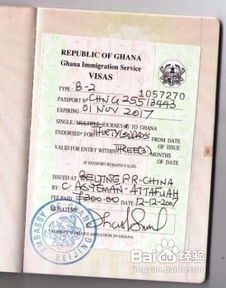 REPUBLIC OF GHANA
Ghana Immigration Service
VISAS
TYPE B-2
1057270
PASSPORT No
EXPIRING 01 NOV 2017
SINGLE/MULTIPLE JOURNEY(S) TO GHANA
ENDORSED* FOR THIRTY DAYS FROM DATE
OF ISSUE
VALID FOR ENTRY WITHIN THREE(3) MONTHS
OF DATE
(IF PASSPORT REMAINS VALID)
ISSUED AT BEIJING PR-CHINA
BY C. 
FEE PAID DATE
IN GHANA
EMBASSY
BEIJING
Bai 百度经验
jingyan.baidu.com